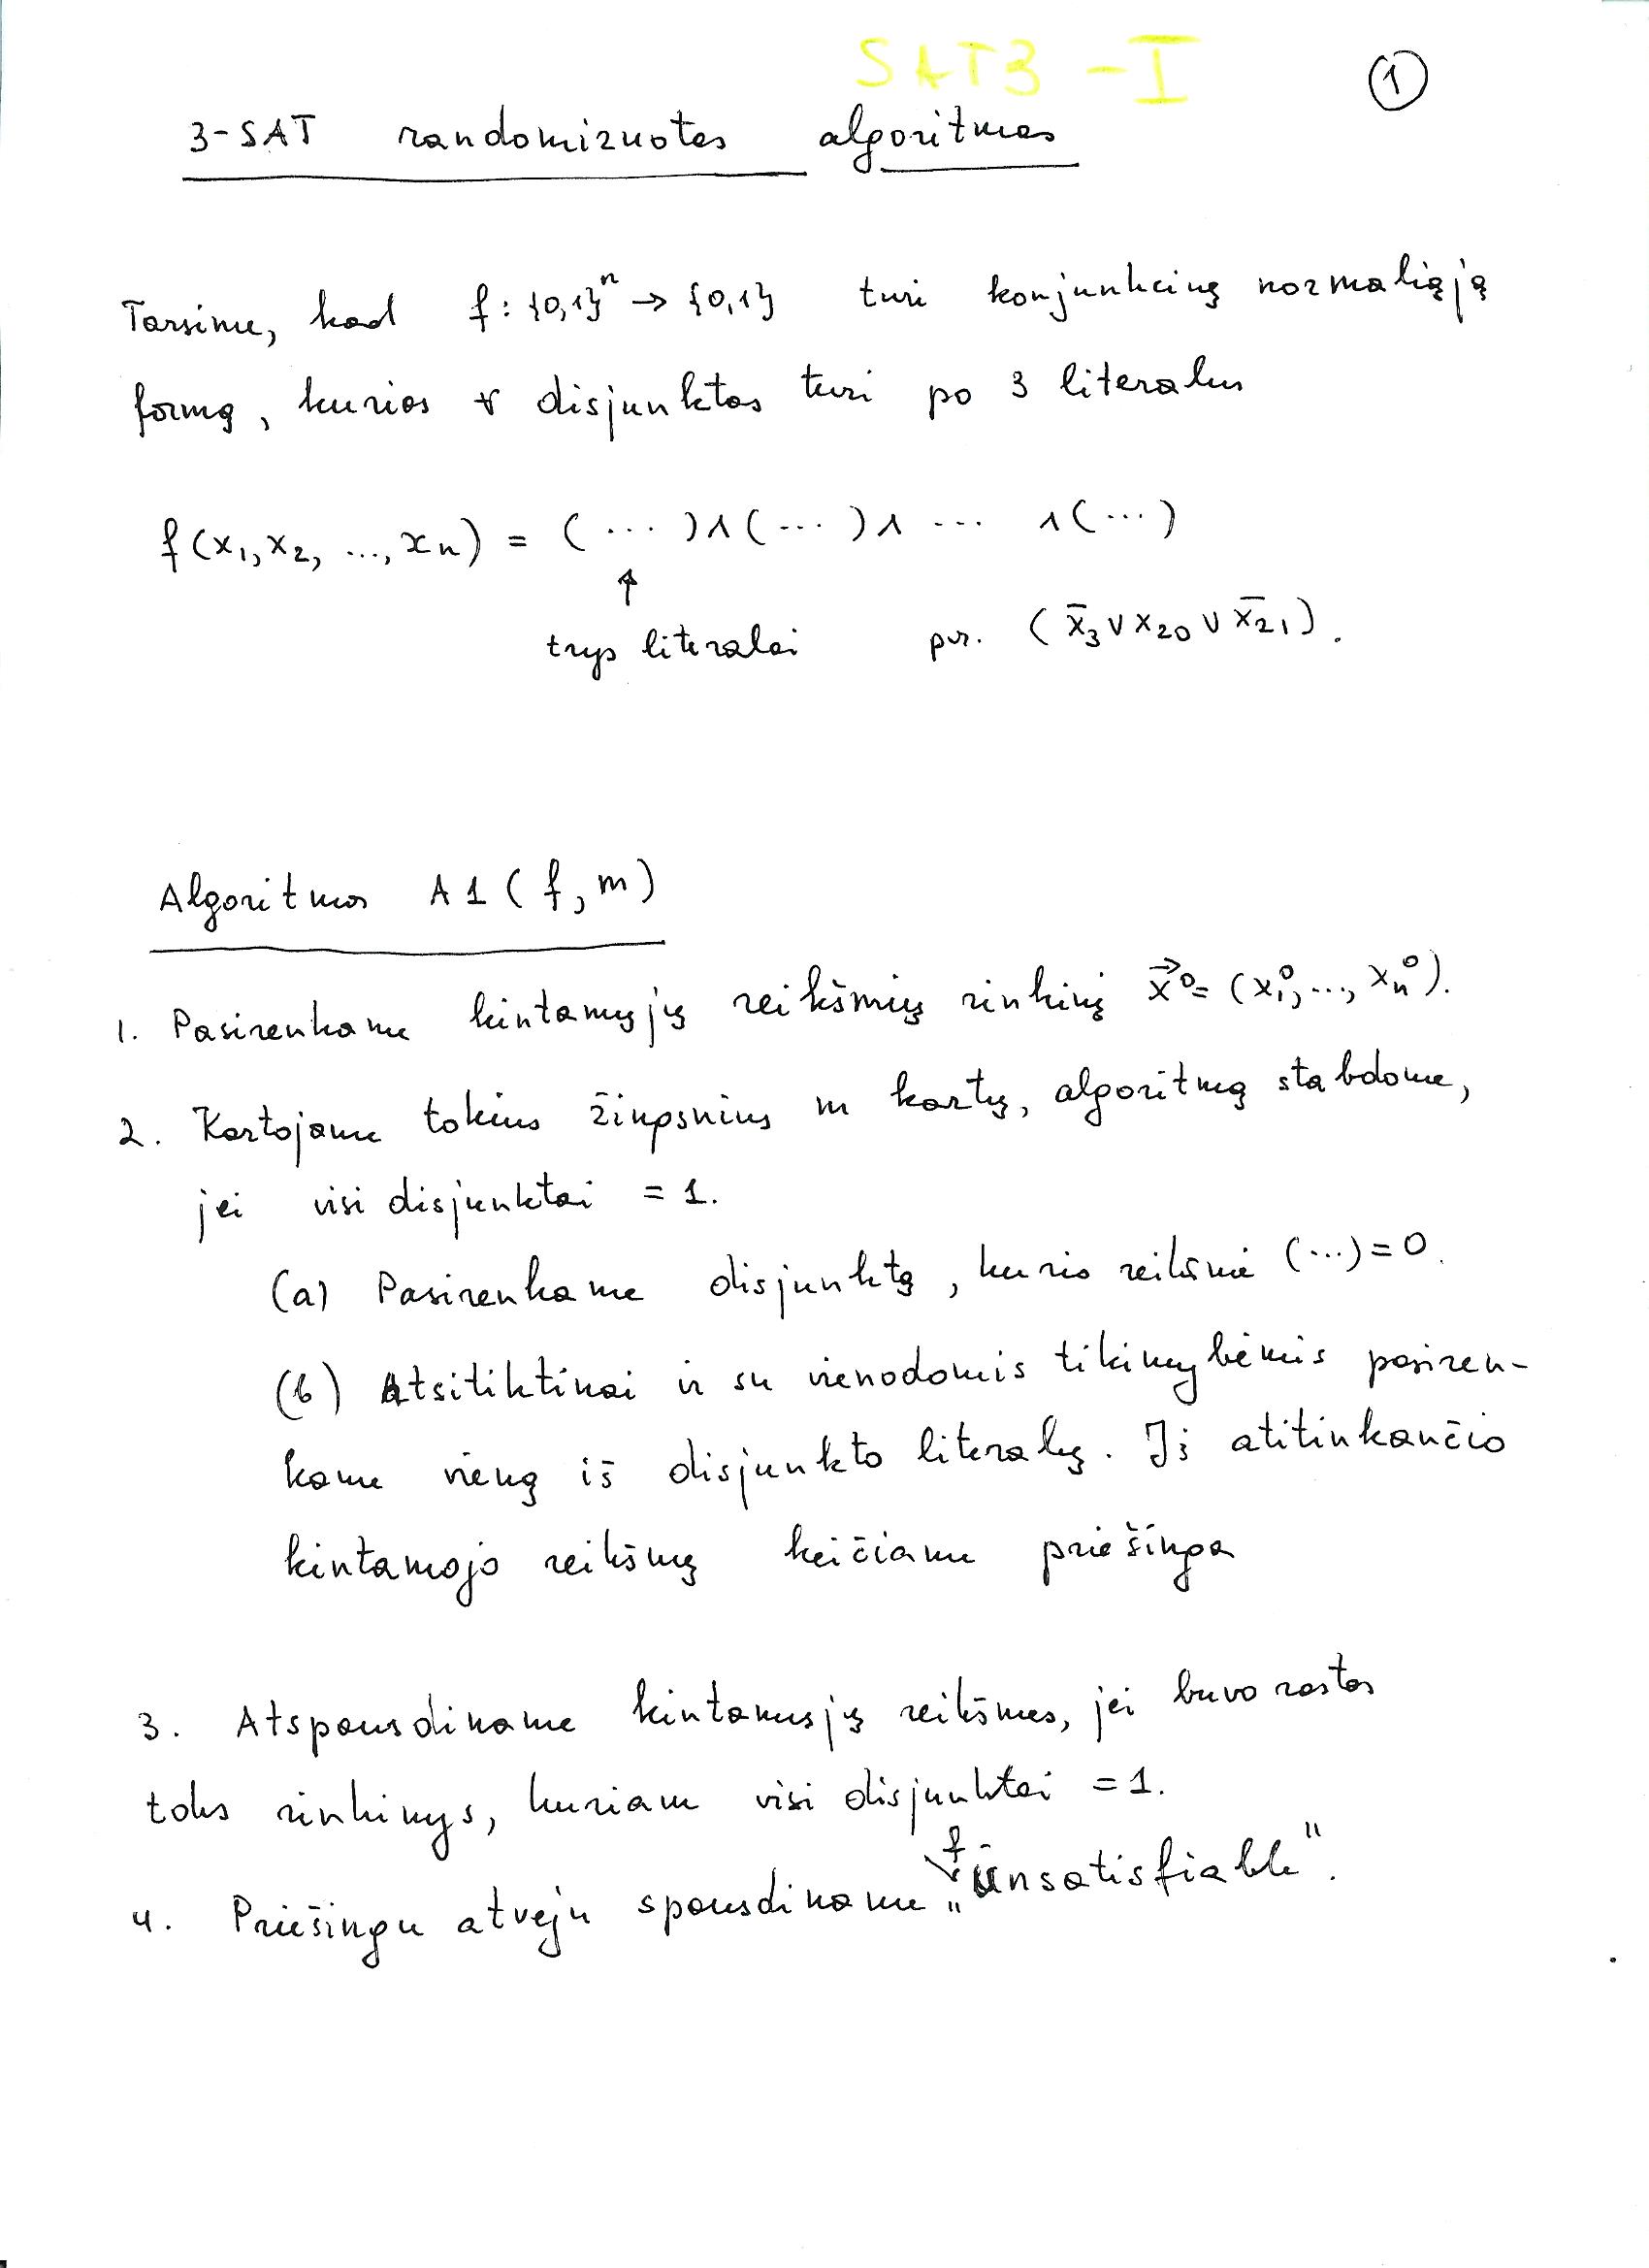 SAT3 - I
1
3-SAT randomizuotas algoritmas
Tarsime, kad f: {0,1}ⁿ → {0,1} turi konjunkcinę normaliąją
formą, kurios ∀ disjunktas turi po 3 literalus
f(x₁, x₂, ..., xₙ) = (...)∧(...)∧ ... ∧(...)
↑
trys literalai pvz. (x̄₃ ∨ x₂₀ ∨ x̄₂₁).
Algoritmas A1(f, m)
1. Pasirenkame kintamųjų reikšmių rinkinį x⃗⁰ = (x₁⁰, ..., xₙ⁰).
2. Kartojame tokius žingsnius m kartų, algoritmą stabdome,
jei visi disjunktai = 1.
(a) Pasirenkame disjunktą, kurio reikšmė (...) = 0.
(b) Atsitiktinai ir su vienodomis tikimybėmis pasiren-
kame vieną iš disjunkto literalų. Jį atitinkančio
kintamojo reikšmę keičiame priešinga
3. Atspausdiname kintamųjų reikšmes, jei buvo rastas
toks rinkinys, kuriam visi disjunktai = 1.
4. Priešingu atveju spausdiname „f - unsatisfiable".